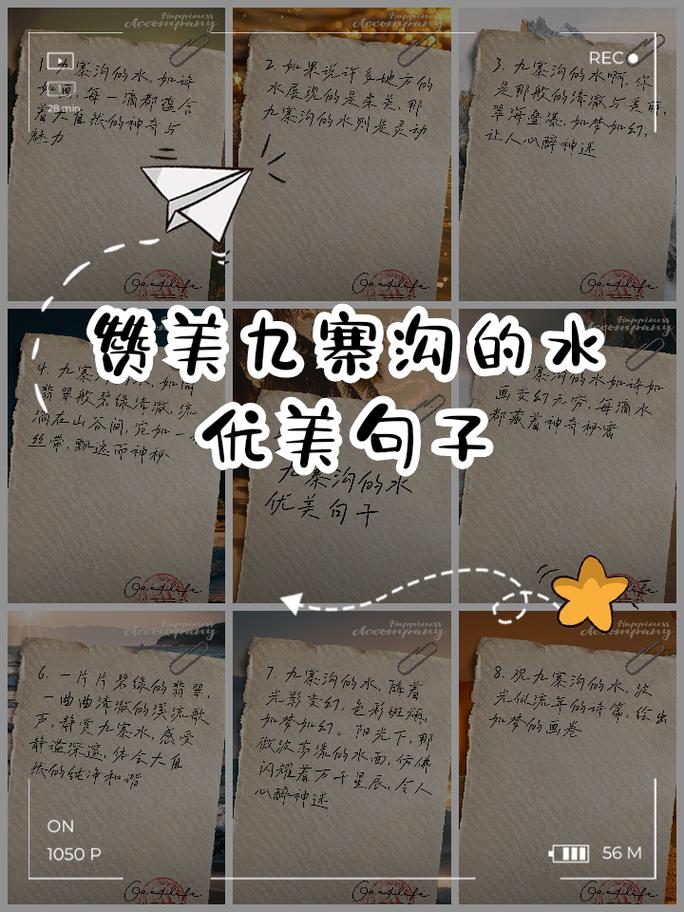 Happiness
Accompany
1. 九寨沟的水，如诗
如画，每一滴都蕴含
着大自然的神奇与
魅力
Goodlife
Happiness
Accompany
2. 如果说许多地方的
水展现的是柔美，那
九寨沟的水则是灵动
Goodlife
Happiness
Accompany
3. 九寨沟的水啊，你
是那般的清澈与美丽，
翠海叠瀑，如梦如幻，
让人心醉神迷
Goodlife
REC
28 min
赞美九寨沟的水
优美句子
4. 九寨
翡翠般碧绿清澈，流
淌在山谷间，宛如一
丝带，飘逸而神秘
Goodlife
九寨沟的水
优美句子
Happiness
Accompany
寨沟的水如诗如
画变幻无穷，每滴水
都藏着神奇秘密
Goodlife
Happiness
Accompany
6. 一片片碧绿的翡翠，
一曲曲清澈的溪流歌
声，静赏九寨水，感受
静谧深邃，体会大自
然的纯净和谐
Goodlife
Happiness
Accompany
7. 九寨沟的水，随着
光影变幻，色彩斑斓，
如梦如幻。阳光下，那
微波荡漾的水面，仿佛
闪耀着万千星辰，令人
心醉神迷
Goodlife
Happiness
Accompany
8. 观九寨沟的水，波
光似流年的诗篇，绘出
如梦的画卷
Goodlife
ON
1050 P
56 M